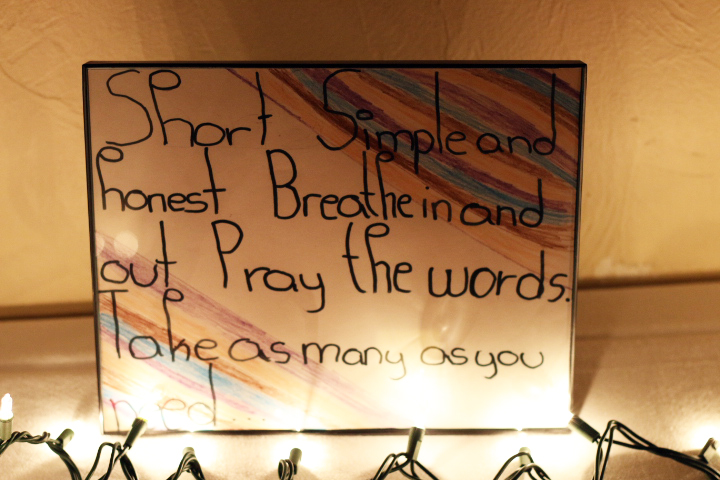 Short Simple and
honest Breathe in and
out Pray the words.
Take as many as you
need....